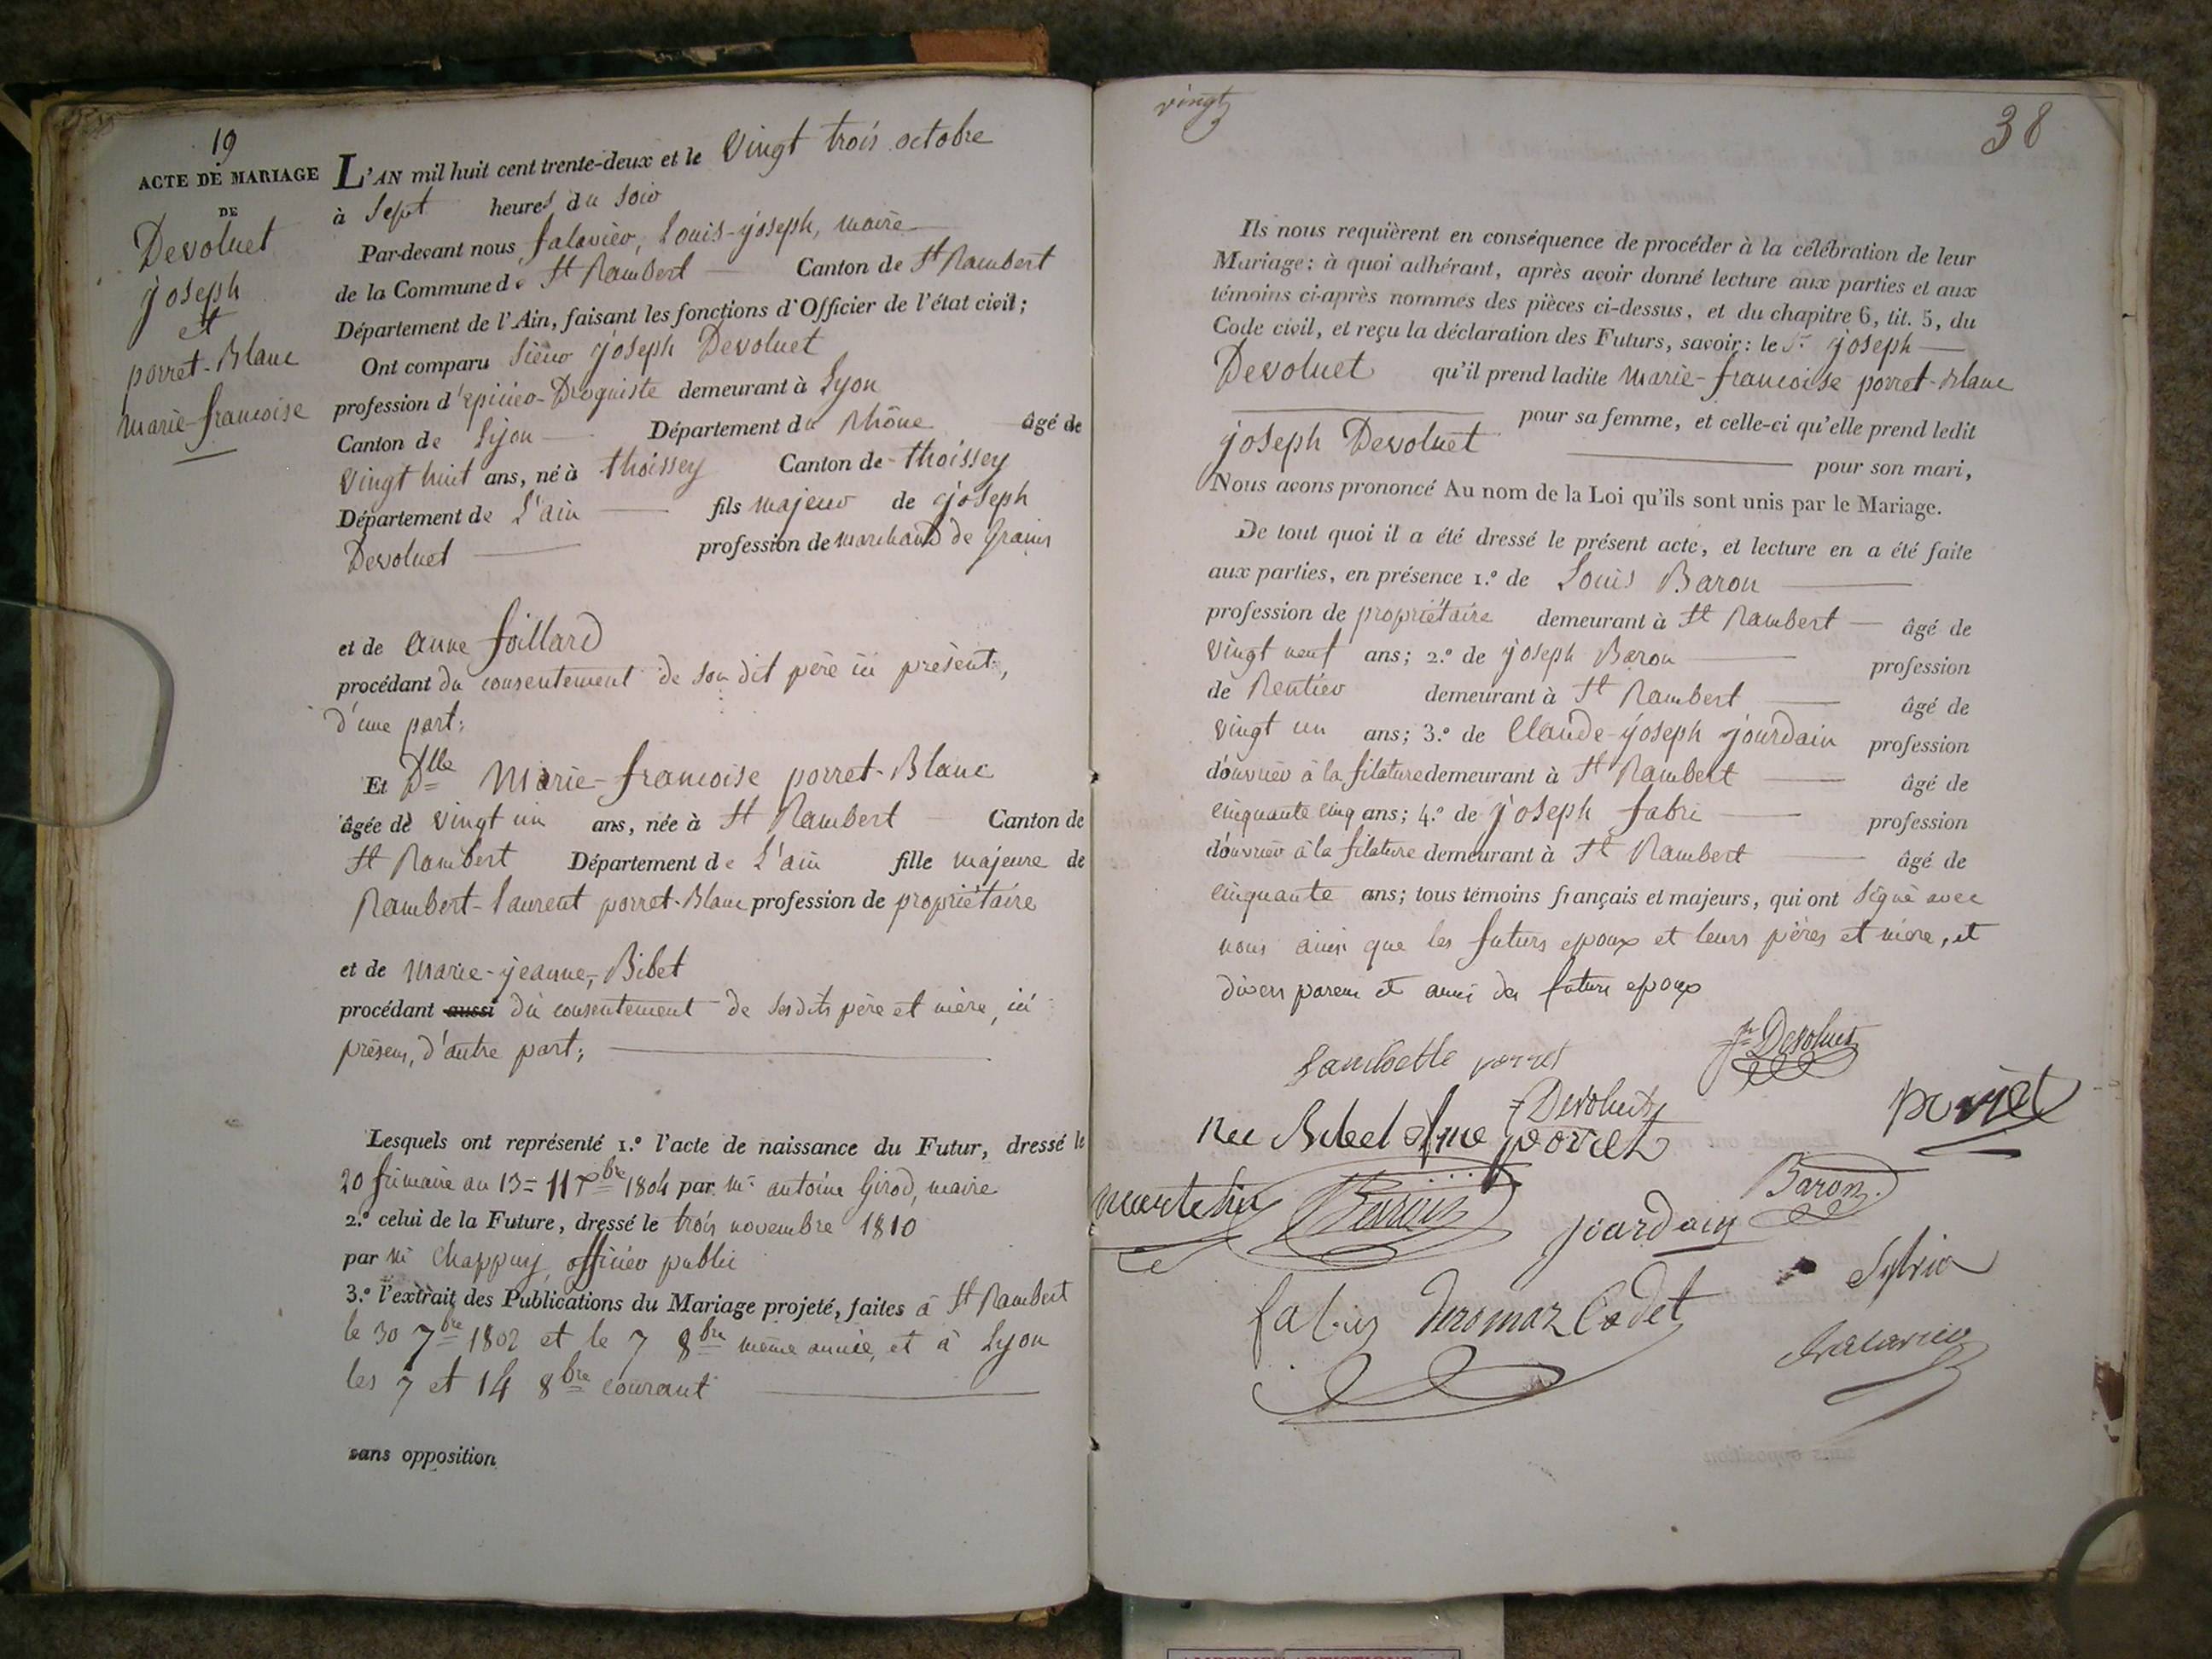 19
ACTE DE MARIAGE
DE
Devoluet
joseph
et
porret-Blanc
marie-francoise
L'AN mil huit cent trente-deux et le vingt trois octobre
à Sept heures du soir
Par-devant nous falavier, Louis-joseph, maire
de la Commune de St Rambert Canton de St Rambert
Département de l'Ain, faisant les fonctions d'Officier de l'état civil;
Ont comparu Sieur joseph Devoluet
profession d'epicier-Droguiste demeurant à Lyon
Canton de Lyon Département du Rhône âgé de
vingt huit ans, né à thoissey Canton de thoissey
Département de L'ain fils majeur de joseph
Devoluet profession de marchand de Grains
et de anne foillard
procédant du consentement de son dit père ici présent,
d'une part;
Et Dlle Marie-francoise porret-Blanc
âgée de vingt un ans, née à St Rambert Canton de
St Rambert Département de L'ain fille majeure de
Rambert-laurent porret-Blanc profession de propriétaire
et de marie-jeanne, Bibet
procédant aussi du consentement de ses dits père et mère, ici
présens, d'autre part;
Lesquels ont représenté 1.º l'acte de naissance du Futur, dressé le
20 frimaire an 13 = 11 Xbre 1804 par mr antoine Girod, maire
2.º celui de la Future, dressé le trois novembre 1810
par mr Chappuy officier public
3.º l'extrait des Publications du Mariage projeté, faites à St Rambert
le 30 7bre 1802 et le 7 8bre même année, et à Lyon
les 7 et 14 8bre courant
sans opposition
vingt
38
Ils nous requièrent en conséquence de procéder à la célébration de leur
Mariage: à quoi adhérant, après avoir donné lecture aux parties et aux
témoins ci-après nommés des pièces ci-dessus, et du chapitre 6, tit. 5, du
Code civil, et reçu la déclaration des Futurs, savoir: le Sr joseph
Devoluet qu'il prend ladite marie-francoise porret-Blanc
pour sa femme, et celle-ci qu'elle prend ledit
joseph Devoluet pour son mari,
Nous avons prononcé Au nom de la Loi qu'ils sont unis par le Mariage.
De tout quoi il a été dressé le présent acte, et lecture en a été faite
aux parties, en présence 1.º de Louis Baron
profession de propriétaire demeurant à St Rambert âgé de
vingt neuf ans; 2.º de joseph Baron profession
de Rentier demeurant à St Rambert âgé de
vingt un ans; 3.º de Claude-joseph jourdain profession
d'ouvrier à la filature demeurant à St Rambert âgé de
cinquante cinq ans; 4.º de joseph fabri profession
d'ouvrier à la filature demeurant à St Rambert âgé de
cinquante ans; tous témoins français et majeurs, qui ont signé avec
nous ainsi que les futurs epoux et leurs pères et mère, et
divers parens et amis des futurs epoux
porret
Jh Devoluet
Devoluet
porret
née Bibet fme porret
Baron
jourdain
Baron
Cadet